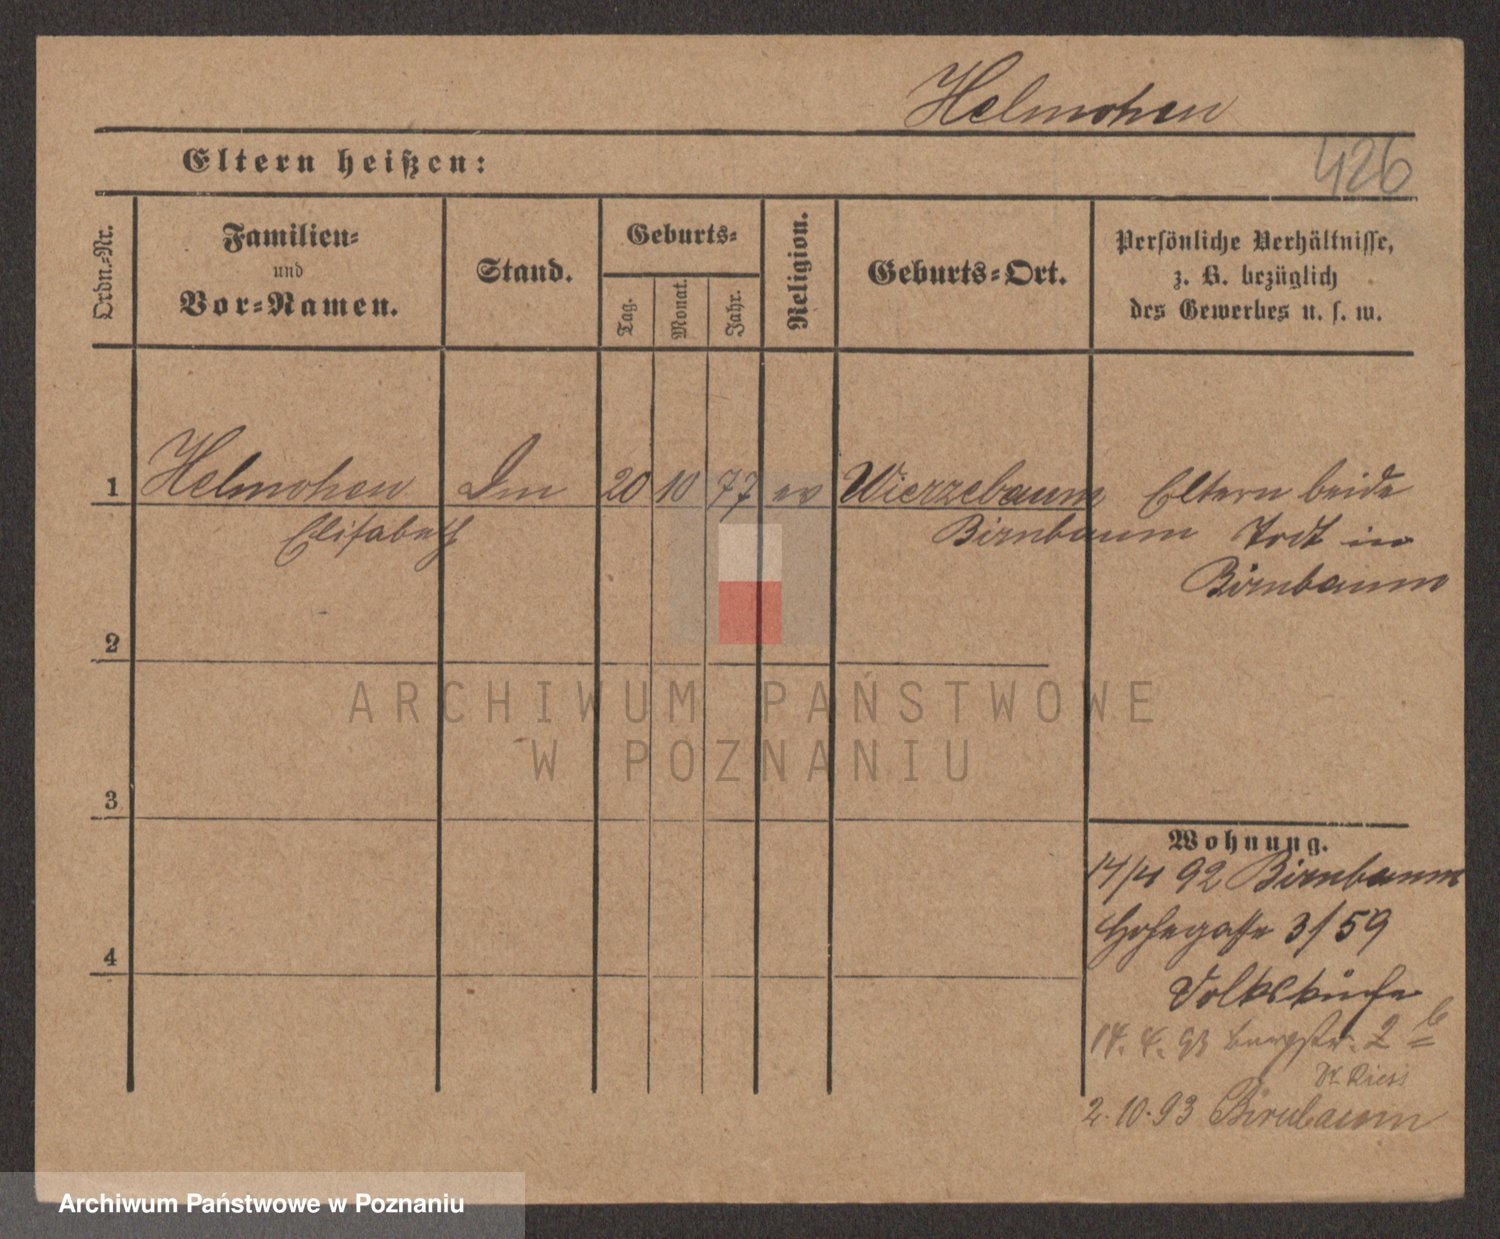 Helmchen
426
Eltern heißen:
Ordn.-Nr.
Familien-
und
Vor-Namen.
Stand.
Geburts-
Tag.
Monat.
Jahr.
Religion.
Geburts-Ort.
Persönliche Verhältnisse,
z. B. bezüglich
des Gewerbes u. s. w.
1 Helmchen 20 10 77 ev Wierzebaum Eltern beide
Elisabeth Birnbaum Todt in
Birnbaum
2
ARCHIWUM PAŃSTWOWE
W POZNANIU
3
Wohnung.
92 Birnbaum
Hohegasse 3/59
4
Volksküche
14. 4. 93 Burgstr. 2 b
2.10.93 Birnbaum
Archiwum Państwowe w Poznaniu